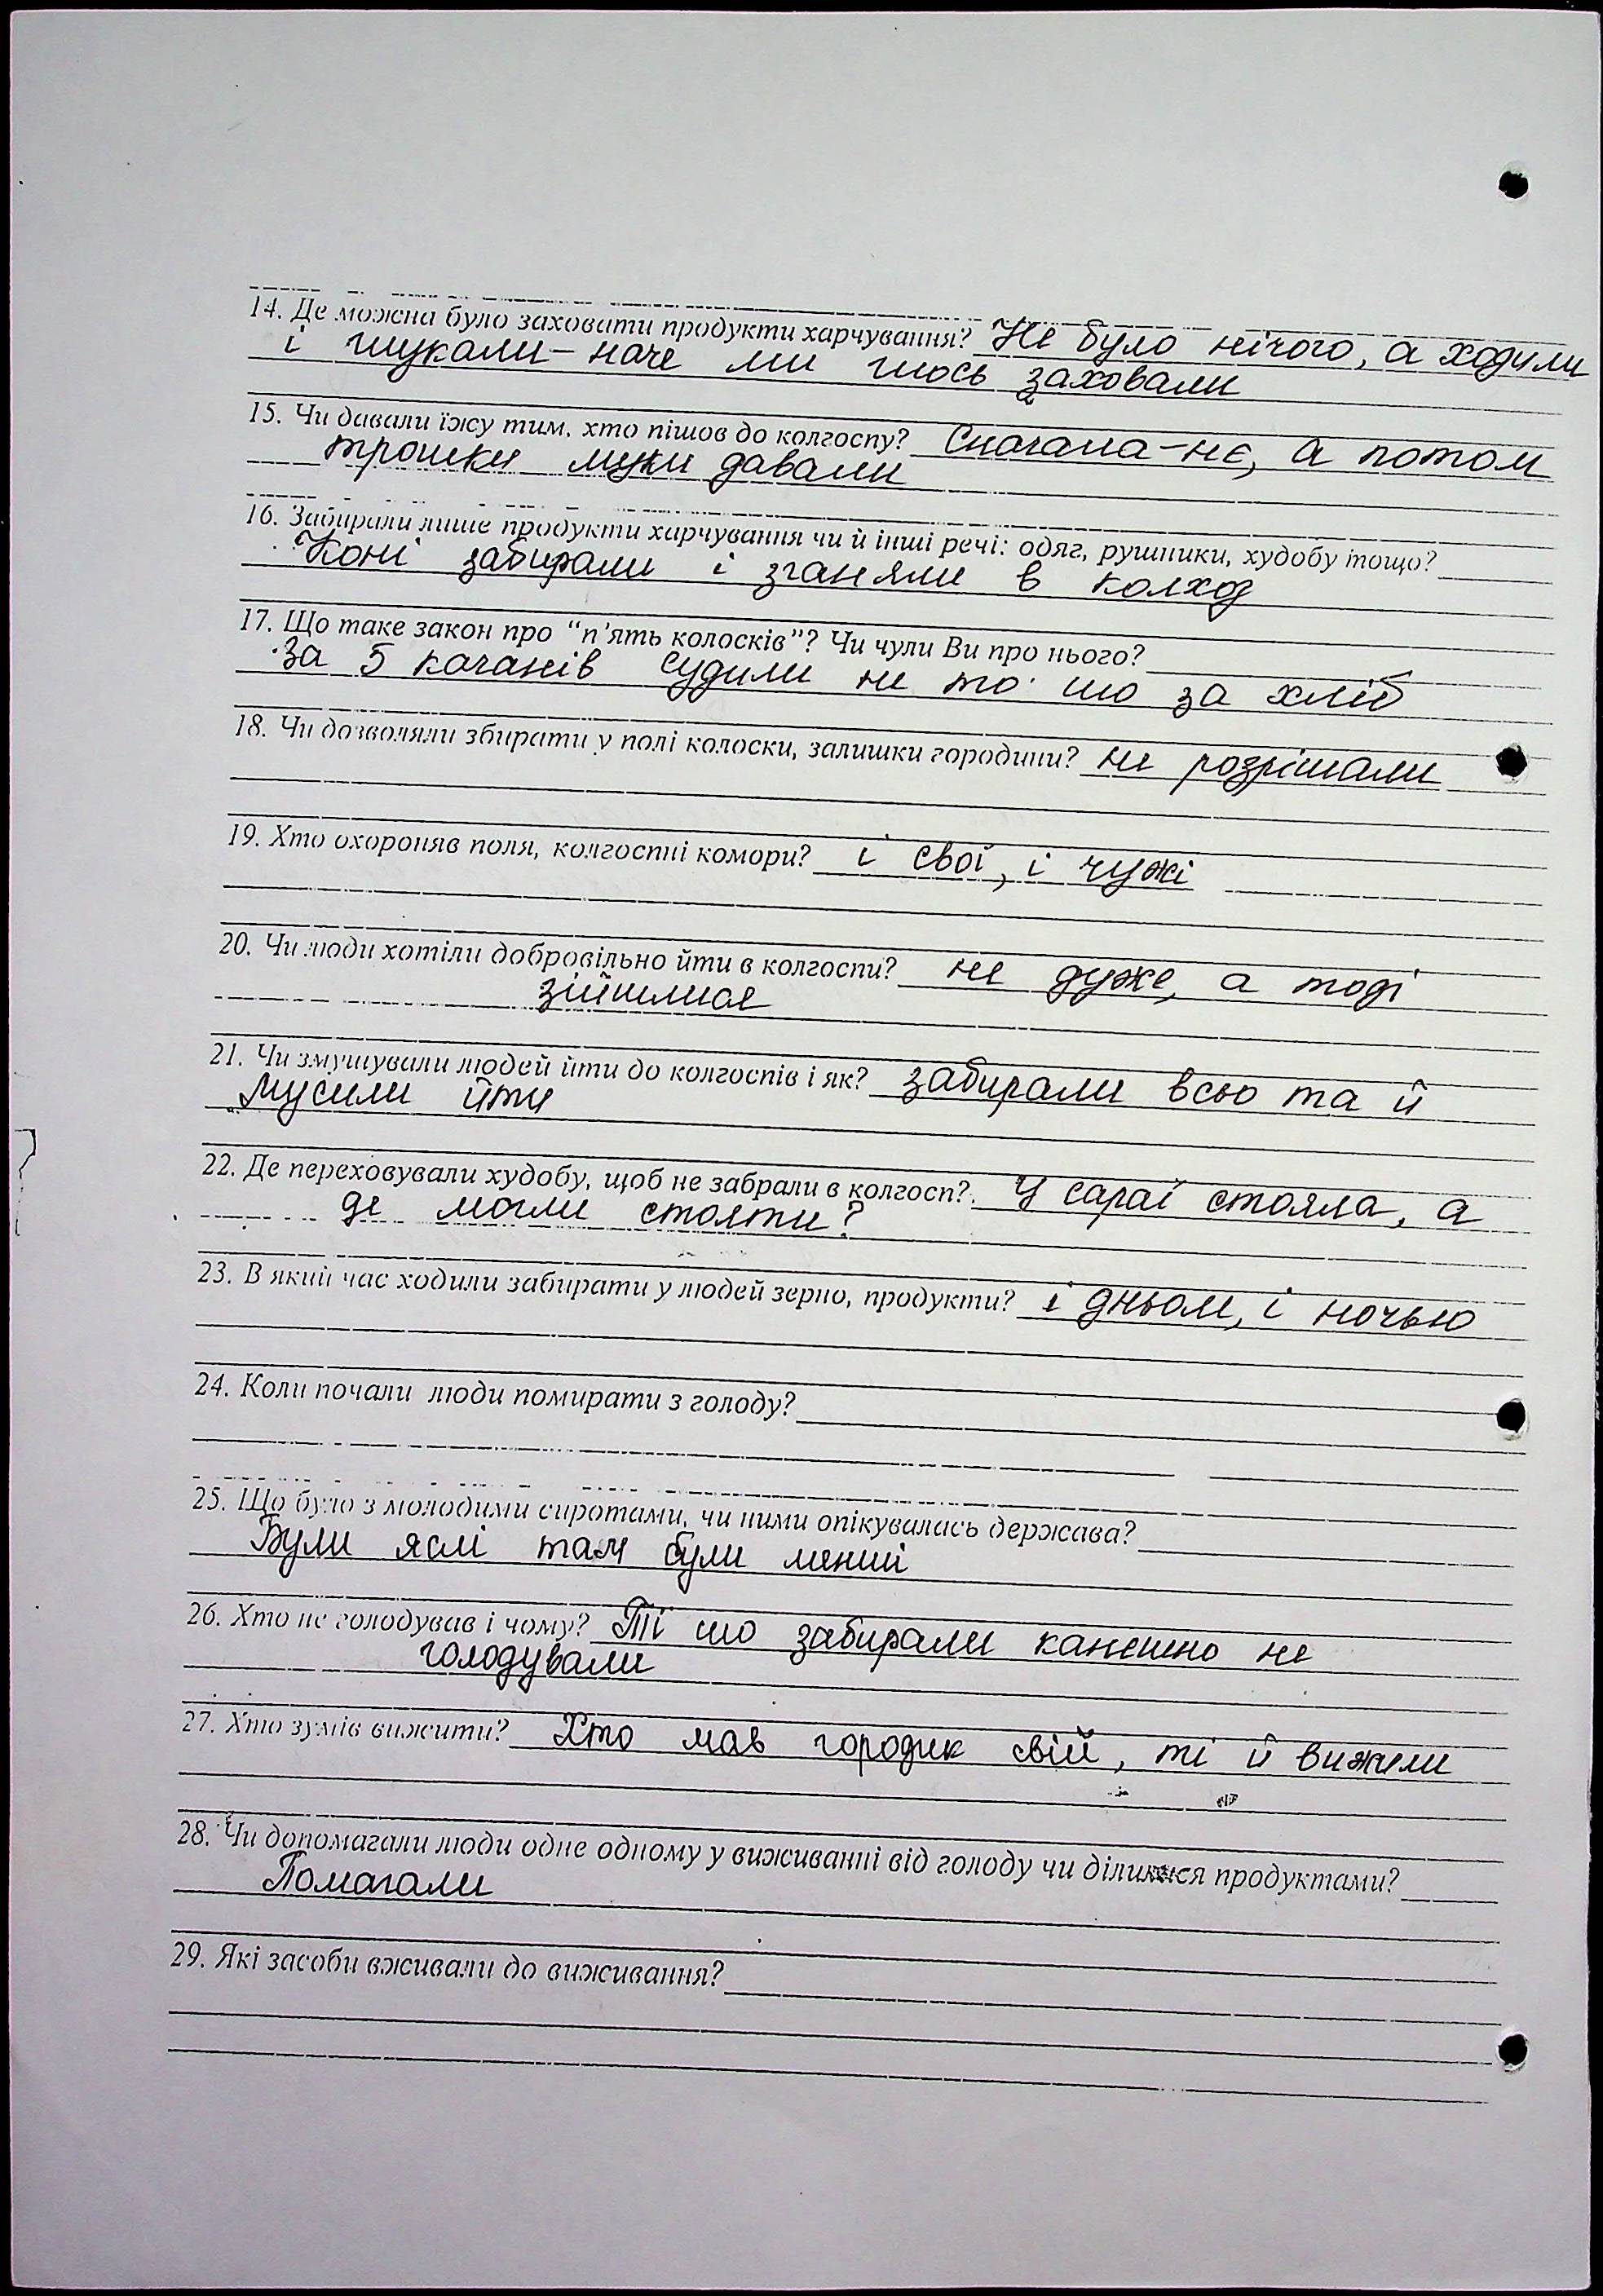 14. Де можна було заховати продукти харчування? Не було нічого, а ходили
і шукали – наче ми шось заховали
15. Чи давали їжу тим, хто пішов до колгоспу? Спочатка – нє, а потом
трошки муки давали
16. Забирали лише продукти харчування чи й інші речі: одяг, рушники, худобу тощо?
Коні забирали і зганяли в колхоз
17. Що таке закон про "п'ять колосків"? Чи чули Ви про нього?
За 5 качанів судили не то шо за хліб
18. Чи дозволяли збирати у полі колоски, залишки городини? не розрішали
19. Хто охороняв поля, колгоспні комори? і свої, і чужі
20. Чи люди хотіли добровільно йти в колгоспи? не дуже, а тоді
зійшлися
21. Чи змушували людей йти до колгоспів і як? забирали всьо та й
мусили йти
22. Де переховували худобу, щоб не забрали в колгосп? У сараї стояла, а
де могли стояти?
23. В який час ходили забирати у людей зерно, продукти? і дньом, і ночью
24. Коли почали люди помирати з голоду?
25. Що було з молодими сиротами, чи ними опікувалась держава?
Були яслі там були менші
26. Хто не голодував і чому? Ті шо забирали канєшно не
голодували
27. Хто зумів вижити? Хто мав городик свій, ті й вижили
28. Чи допомагали люди одне одному у виживанні від голоду чи ділилися продуктами?
Помагали
29. Які засоби вживали до виживання?